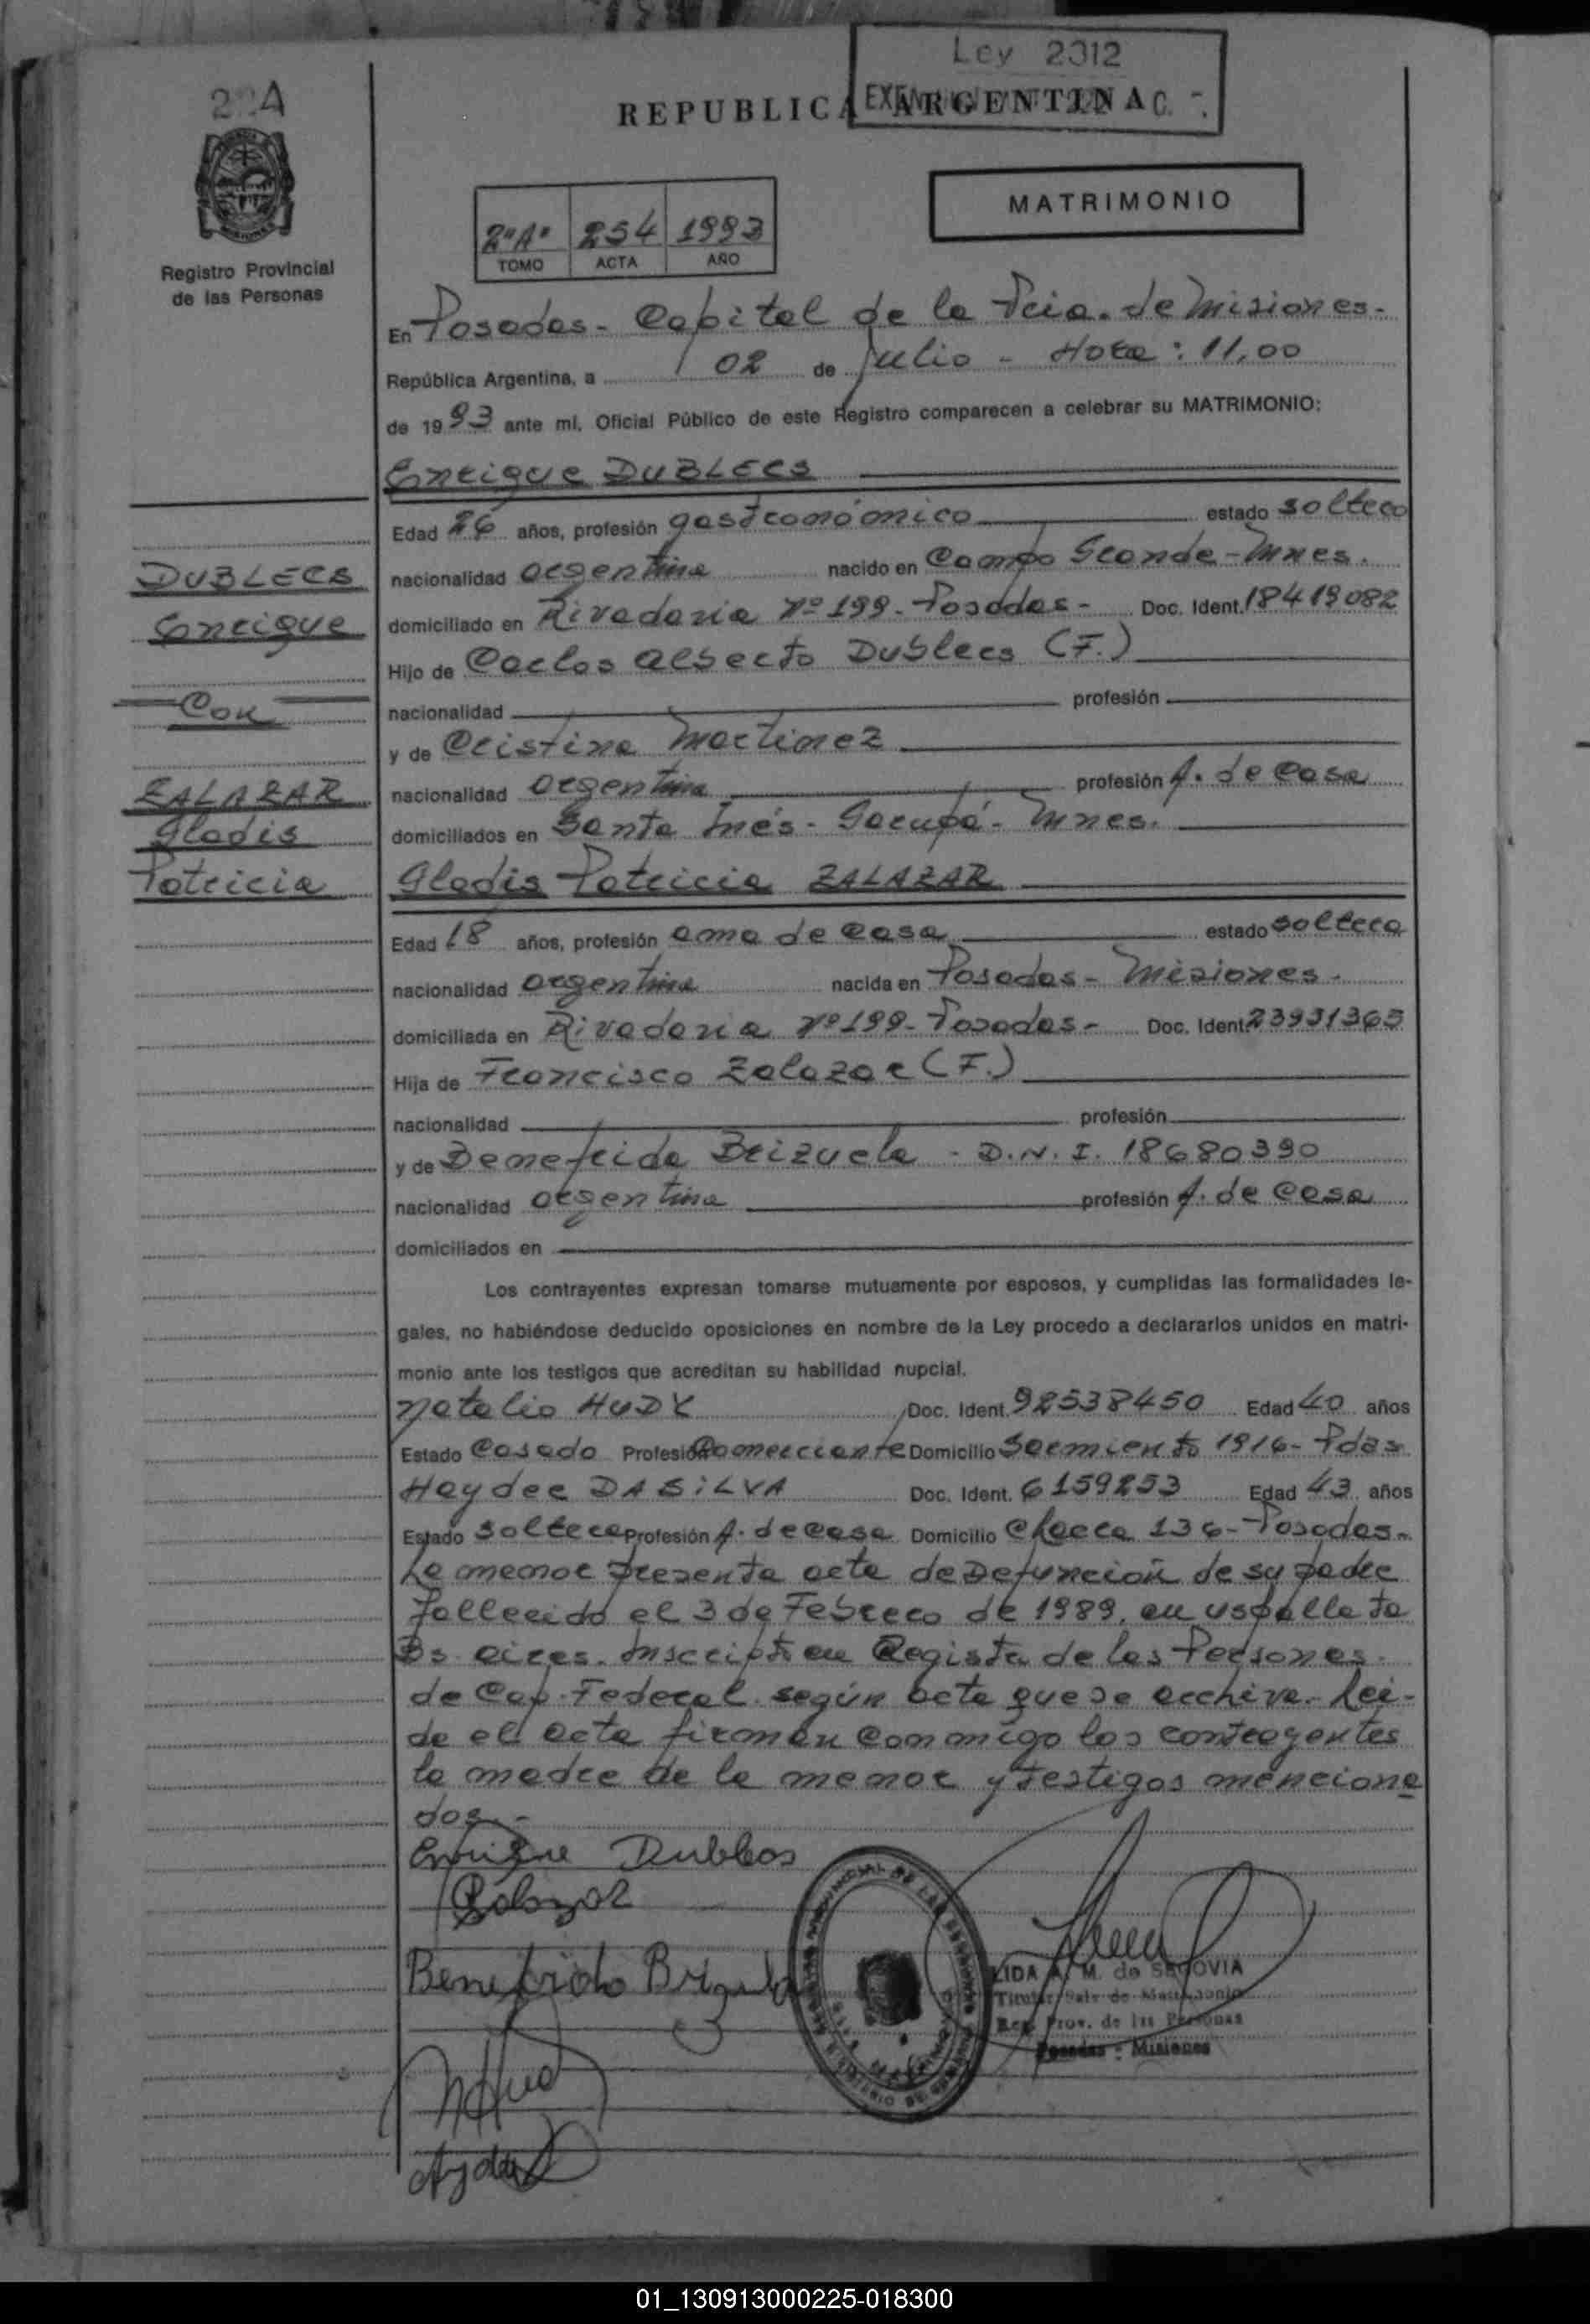 Ley 2312
REPUBLICA ARGENTINA
MATRIMONIO
2ºAº 254 1993
TOMO ACTA AÑO
Registro Provincial
de las Personas
En Posadas - Capital de la Pcia. de Misiones -
República Argentina, a 02 de Julio - Hora: 11,00
de 1993 ante mí, Oficial Público de este Registro comparecen a celebrar su MATRIMONIO:
Enrique DUBLECS
Edad 26 años, profesión gastronómico estado soltero
DUBLECS
nacionalidad argentina nacido en Campo Grande - Mnes.
Enrique
domiciliado en Rivadavia Nº 199 - Posadas - Doc. Ident. 18419082
Hijo de Carlos Alberto Dublecs (F.)
Con
nacionalidad profesión
y de Cristina Martinez
ZALAZAR
nacionalidad argentina profesión A. de casa
Gladis
domiciliados en Santa Inés - Garupá - Mnes.
Patricia
Gladis Patricia ZALAZAR
Edad 18 años, profesión ama de casa estado soltera
nacionalidad argentina nacida en Posadas - Misiones -
domiciliada en Rivadavia Nº 199 - Posadas - Doc. Ident. 23931365
Hija de Francisco Zalazar (F.)
nacionalidad profesión
y de Benefrida Brizuela - D.N.I. 18680390
nacionalidad argentina profesión A. de casa
domiciliados en
Los contrayentes expresan tomarse mutuamente por esposos, y cumplidas las formalidades le-
gales, no habiéndose deducido oposiciones en nombre de la Ley procedo a declararlos unidos en matri-
monio ante los testigos que acreditan su habilidad nupcial.
Natalio HUDY Doc. Ident. 92538450 Edad 40 años
Estado Casado Profesión Comerciante Domicilio Sarmiento 1916 - Pdas
Haydee DASILVA Doc. Ident. 6159253 Edad 43 años
Estado soltera Profesión A. de casa Domicilio Chacra 136 - Posadas -
La menor presenta acta de Defunción de su padre
fallecido el 3 de Febrero de 1989, en uspallata
Bs. aires. Inscripto en Registro de las Personas
de Cap. Federal. según acta que se archiva. Leí-
da el acta firman conmigo los contrayentes
la madre de la menor y testigos menciona
dos.-
Enrique
Benefrida
LIDA A. M. de SEGOVIA
Titular Sala de Matrimonio
Reg. Prov. de las Personas
Posadas - Misiones
01_130913000225-018300